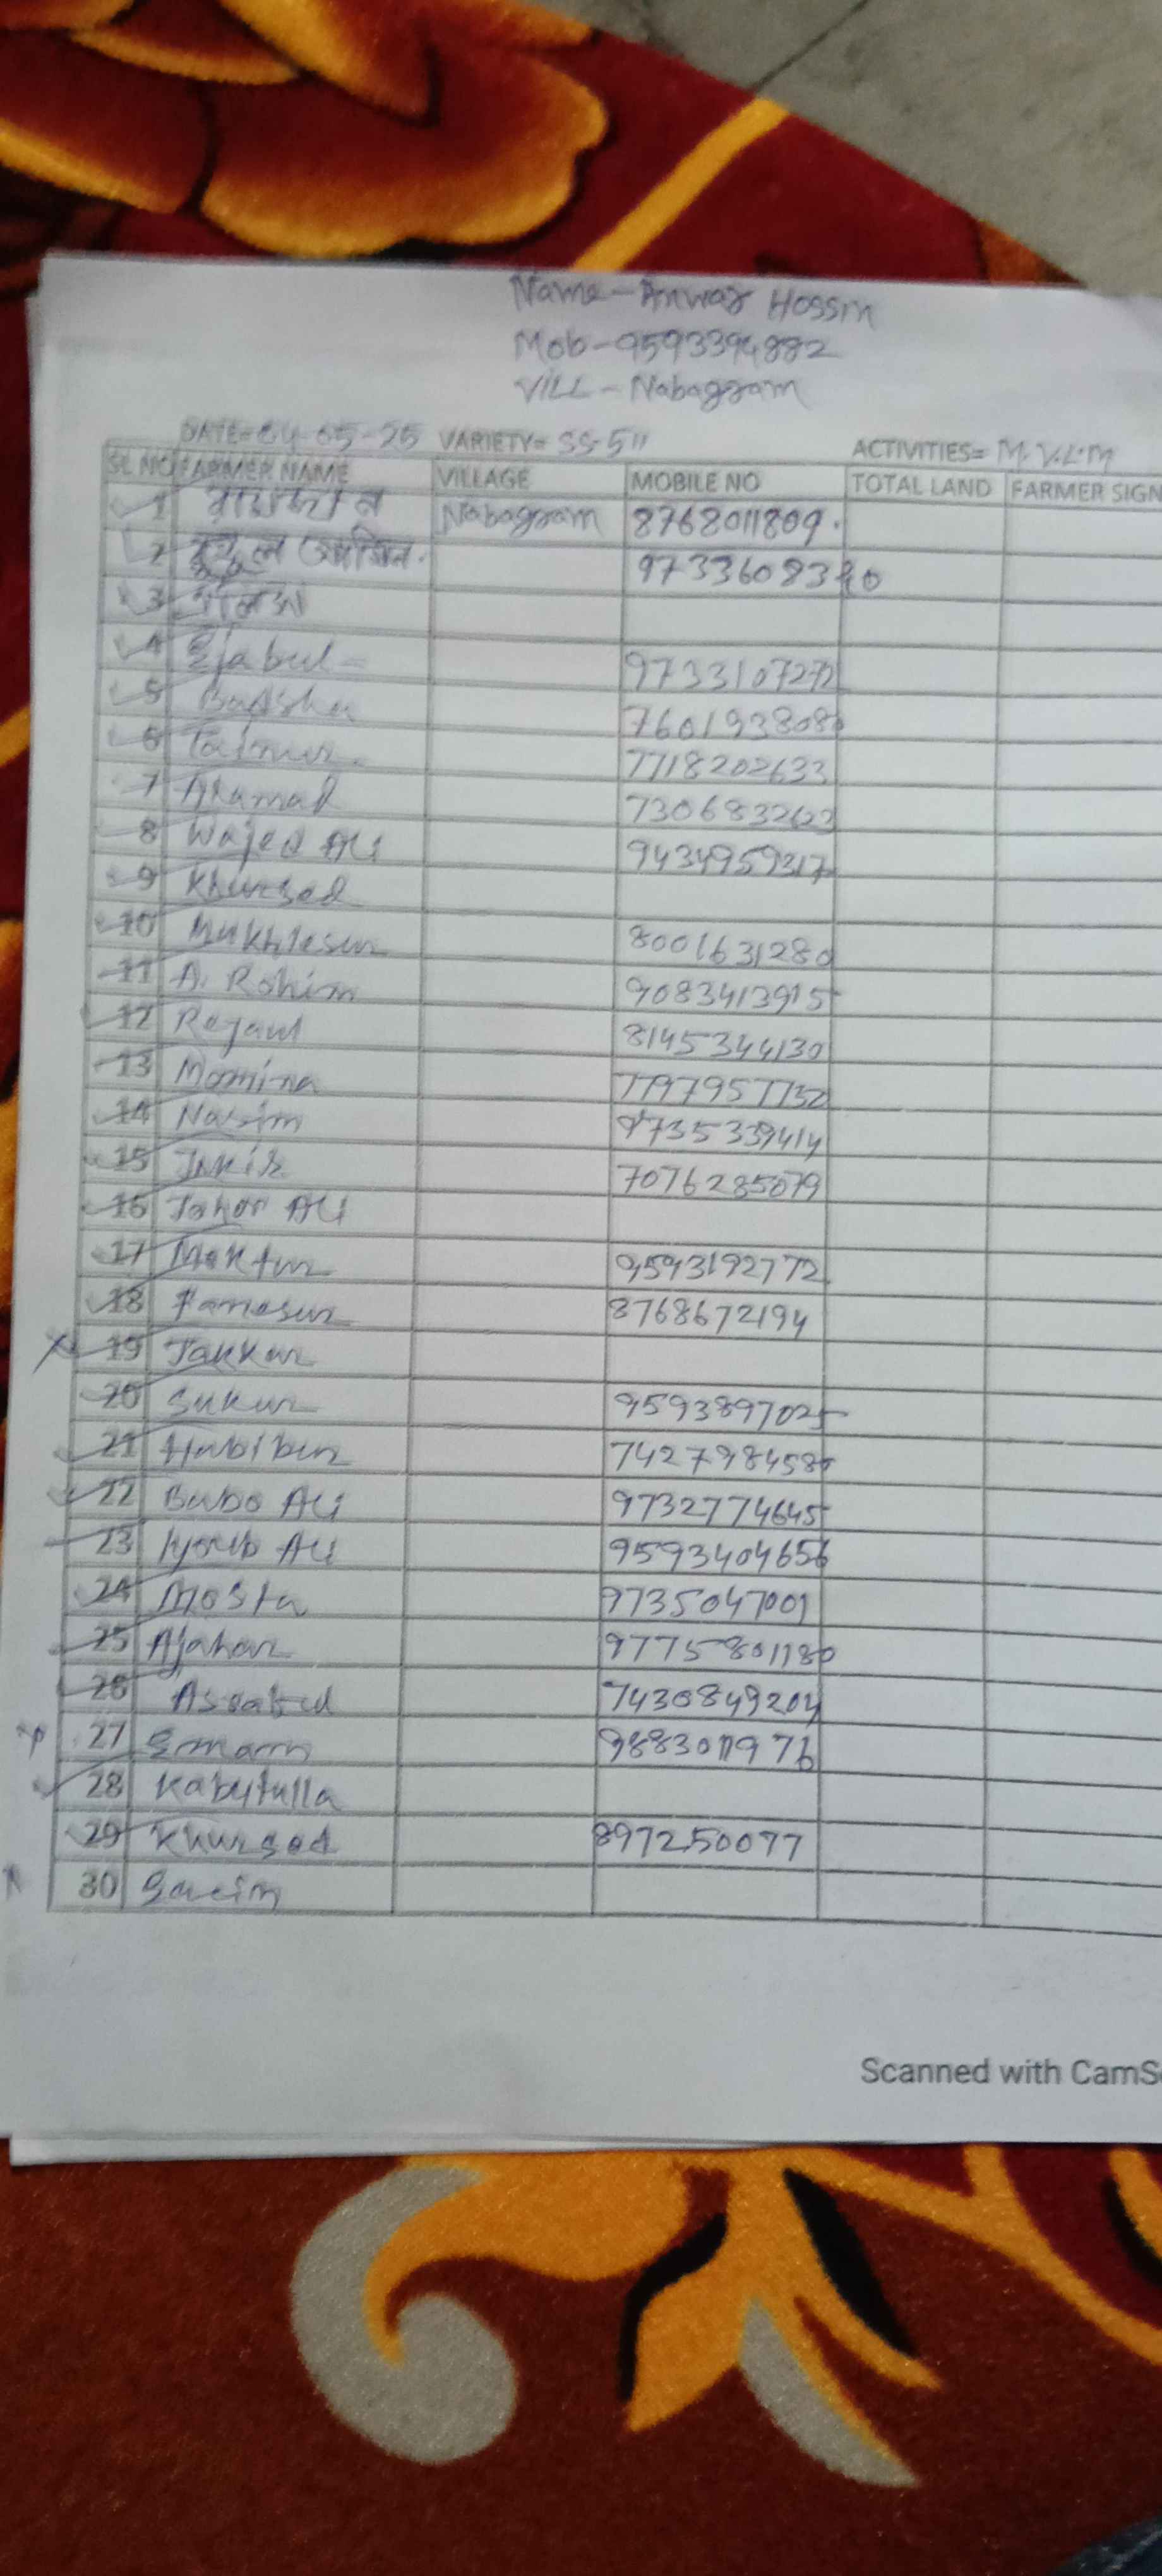 Name - Anwar Hossin
Mob - 9593394882
VILL - Nabagram
DATE= 04-05-25 VARIETY= SS-511 ACTIVITIES= M.V.L.M
SL NO FARMER NAME VILLAGE MOBILE NO TOTAL LAND FARMER SIGN
1 Nabagram 8768011809
2 97336083
3
4 Ejabul 9733107272
5 Badsha 760193808
6 Taimur 7718202633
7 730683262
8 Wajed Ali 9434959317
9 Khursed
10 Mukhlesur 8001631280
11 A. Rohim 9083413915
12 Rejaul 8145344130
13 Momina 7797957732
14 Nasim 9735339414
15 7076285079
16 Johor Ali
17 Moktur 9593192772
18 8768672194
19 Jakkar
20 Sukur 9593897025
21 Habibur 742798458
22 Babo Ali 9732774645
23 Iyoub Ali 9593404656
24 Mosta 9735047001
25 Ajahar 9775801180
26 7430849204
27 Emam 9883011976
28 Kabytulla
29 Khursed 897250077
30
Scanned with CamS